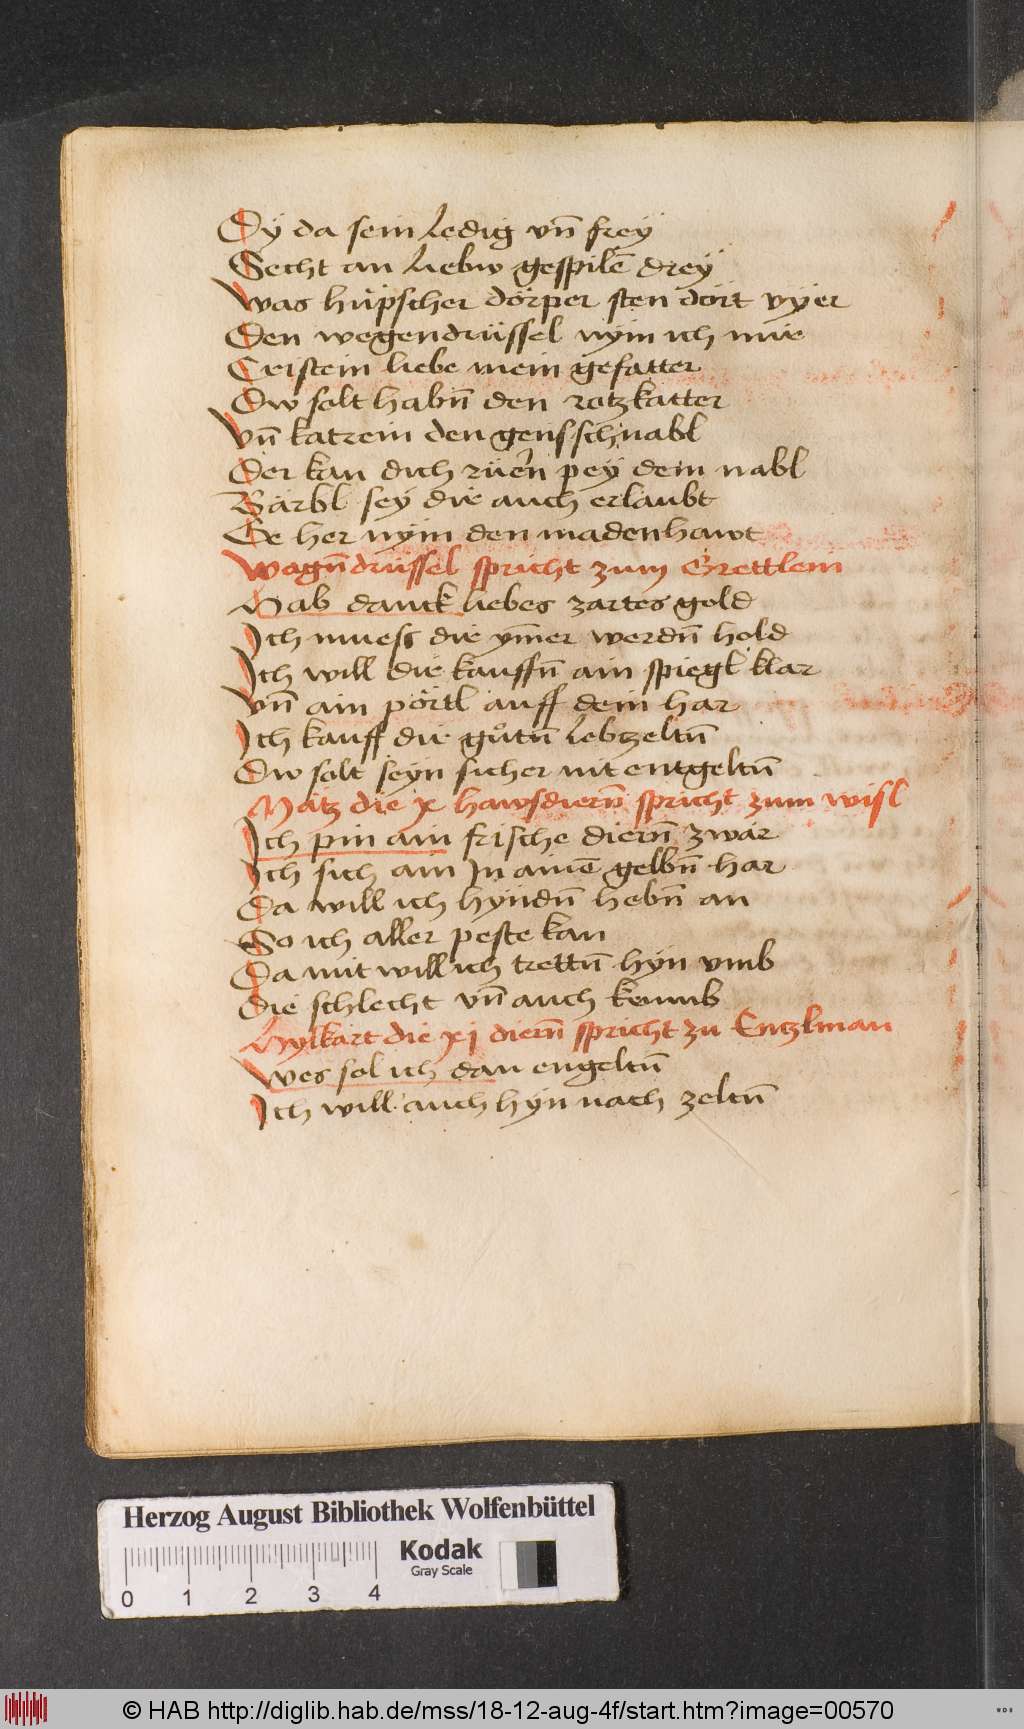 Dÿ da sein ledig vn̄ freÿ
Secht an liebw gespilē dreÿ
Was hüpscher dörper sten dört vÿer
Den wegendrüssel nÿm ich mir
Cristein liebe mein gefatter
Dw solt habn̄ den rotzkatter
Vn̄ katrein den gensschnabl
Der kan dich rüern peÿ dem nabl
Bärbl seÿ dir auch erlaubt
Se her nÿm den madenhawt
Wagn̄drüssel spricht zum Grettlein
Hab danck liebes zartes gold
Ich muess dir ÿm̄er werdn̄ hold
Ich will dir kauffn̄ ain spiegl klar
Vn̄ ain pörtl auff dein har
Ich kauff dir gůtn̄ lebtzeltn̄
Dw solt seyn sicher nit entgeltn̄
Mätz die x hawsdiern̄ spricht zum wisl
Ich pin ain frische diern̄ zwar
Ich sich ain In ainē gelbn̄ har
Da will ich hÿndn̄ hebn̄ an
So ich aller peste kan
Da mit will ich trettn̄ hÿn vmb
Die schlecht vn̄ auch krumb
Hylkart die xj diern̄ spricht zu Entzlman
Wes sol ich dan engeltn̄
Ich will auch hÿn nach zeltn̄
Herzog August Bibliothek Wolfenbüttel
Kodak
Gray Scale
0 1 2 3 4
© HAB http://diglib.hab.de/mss/18-12-aug-4f/start.htm?image=00570